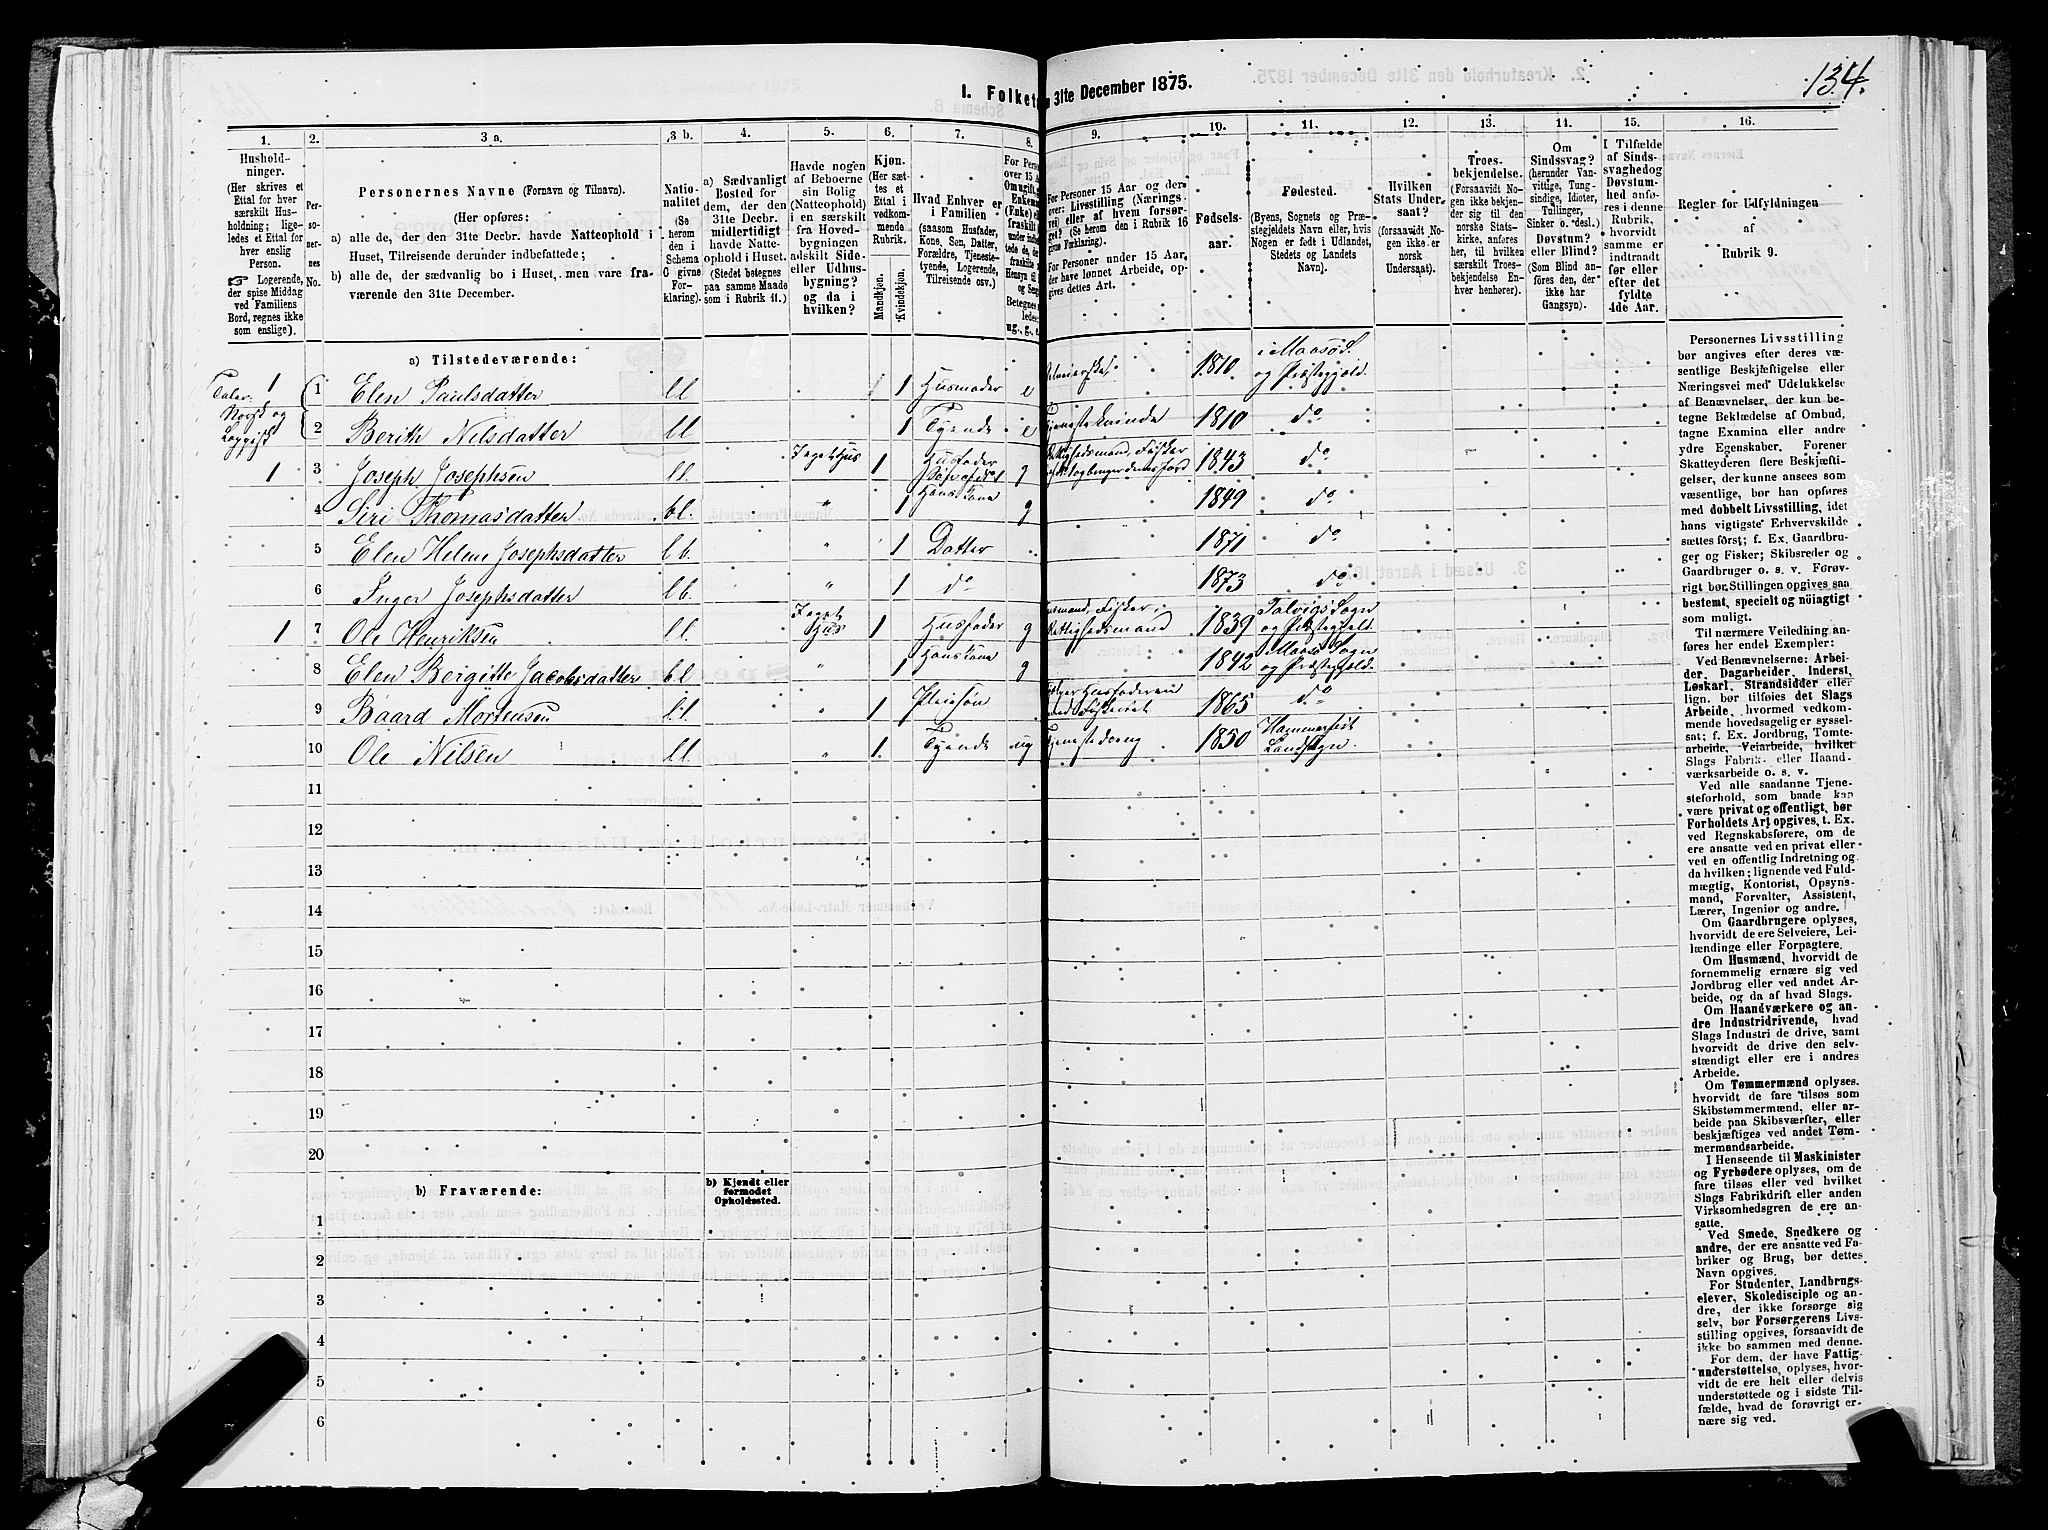 134.
I. Folket 31te December 1875.
1. 2. 3 a. 3 b. 4. 5. 6. 7. 8. 9. 10. 11. 12. 13. 14. 15. 16.
Hushold-
ninger.
(Her skrives et
Ettal for hver
særskilt Hus-
holdning; lige-
ledes et Ettal for
hver enslig
Person.
☞ Logerende,
der spise Middag
ved Familiens
Bord, regnes ikke
som enslige).
Per-
so-
ner-
nes
No.
Personernes Navne (Fornavn og Tilnavn).
(Her opføres:
a) alle de, der den 31te Decbr. havde Natteophold i
Huset, Tilreisende derunder indbefattede;
b) alle de, der sædvanlig bo i Huset, men vare fra-
værende den 31te December.)
Natio-
nalitet
(Se
herom
den i
Schema
C givne
For-
klaring).
a) Sædvanligt
Bosted for
dem, der den
31te Decbr.
midlertidigt
havde Natte-
ophold i Huset.
(Stedet betegnes
paa samme Maade
som i Rubrik 11.)
Havde nogen
af Beboerne
sin Bolig
(Natteophold)
i en særskilt
fra Hoved-
bygningen
adskilt Side-
eller Udhus-
bygning?
og da i
hvilken?
Kjøn.
(Her sæt-
tes et
Ettal i
vedkom-
mende
Rubrik.
Mandkjøn.
Kvindekjøn.
Hvad Enhver er
i Familien
(saasom Husfader,
Kone, Søn, Datter,
Forældre, Tjeneste-
tyende, Logerende,
Tilreisende osv.)
For Personer 15 Aar og der-
over: Livsstilling (Nærings-
vei) eller af hvem forsør-
get? (Se herom den i Rubrik 16
givne Forklaring).
For Personer under 15 Aar,
der have lønnet Arbeide, op-
gives dettes Art.
Fødsels-
aar.
Fødested.
(Byens, Sognets og Præ-
stegjeldets Navn, eller, hvis
Nogen er født i Udlandet,
Stedets og Landets
Navn).
Hvilken
Stats Under-
saat?
(forsaavidt No-
gen ikke er
norsk
Undersaat).
Troes-
bekjendelse.
(Forsaavidt No-
gen ikke bekjen-
der sig til den
norske Stats-
kirke, anføres
her, til hvilken
særskilt Troes-
bekjendelse En-
hver henhører).
Om
Sindssvag?
(herunder Van-
vittige, Tung-
sindige, Idioter,
Tullinger,
Sinker o. desl.)
Døvstum?
eller Blind?
(Som Blind an-
føres den, der
ikke har
Gangsyn).
I Tilfælde
af Sinds-
svaghed og
Døvstum-
hed anfø-
res i denne
Rubrik,
hvorvidt
samme er
indtraadt
før eller
efter det
fyldte
4de Aar.
Regler for Udfyldningen
af
Rubrik 9.
a) Tilstedeværende:
Taler
Norsk og
Lappisk
1 1 Elen Paulsdatter ll 1 Husmoder e 1810 i Maasø S. og Præstegjeld.
2 Berith Nilsdatter ll 1 Tyende e Tjenestekvinde 1810 do
1 3 Joseph Josephsen ll. 1 Husfader g 1843 do
4 Siri Thomasdatter bl. " 1 Hans Kone g 1849 do
5 Elen Helene Josephsdatter lb. " 1 Datter 1871 do
6 Inger Josephsdatter lb. " 1 do 1873 do
1 7 Ole Henriksen ll. 1 Husfader g 1839 Talvigs Sogn og Præstegjeld.
8 Elen Bergitte Jacobsdatter bl " 1 Hans Kone g 1842 Maasø Sogn og Præstegjeld.
9 Baard Mortensen ll. " 1 Pleiesøn 1865 do
10 Ole Nilsen ll. " 1. Tyende ug Tjenestedreng 1850 Hammerfest Landsogn.
11
12
13
14
15
16
17
18
19
20
b) Fraværende:
b) Kjendt eller
formodet
Opholdssted.
1
2
3
4
5
6
Personernes Livsstilling
bør angives efter deres væ-
sentlige Beskjæftigelse eller
Næringsvei med Udelukkelse
af Benævnelser, der kun be-
tegne Beklædelse af Ombud,
tagne Examina eller andre
ydre Egenskaber. Forener
Skatteyderen flere Beskjæfti-
gelser, der kunne ansees som
væsentlige, bør han opføres
med dobbelt Livsstilling, idet
hans vigtigste Erhvervskilde
sættes først; f. Ex. Gaardbru-
ger og Fisker; Skibsreder og
Gaardbruger o. s. v. Forøv-
rigt bør Stillingen opgives saa
bestemt, specielt og nøiagtigt
som muligt.
Til nærmere Veiledning an-
føres her endel Exempler:
Ved Benævnelserne: Arbei-
der, Dagarbeider, Inderst,
Løskarl, Strandsidder eller
lign. bør tilføies det Slags
Arbeide, hvormed vedkom-
mende hovedsagelig er syssel-
sat; f. Ex. Jordbrug, Tomte-
arbeide, Veiarbeide, hvilket
Slags Fabrik- eller Haand-
værksarbeide o. s. v.
Ved alle saadanne Tjene-
steforhold, som baade kan
være privat og offentligt, bør
Forholdets Art opgives, t. Ex.
ved Regnskabsførere, om de
ere ansatte ved en privat eller
ved en offentlig Indretning og
da hvilken; lignende ved Fuld-
mægtig, Kontorist, Opsyns-
mand, Forvalter, Assistent,
Lærer, Ingeniør og andre.
Om Gaardbrugere oplyses,
hvorvidt de ere Selveiere, Lei-
lændinge eller Forpagtere.
Om Husmænd, hvorvidt de
fornemmelig ernære sig ved
Jordbrug eller ved andet Ar-
beide, og da af hvad Slags.
Om Haandværkere og an-
dre Industridrivende, hvad
Slags Industri de drive, samt
hvorvidt de drive den selv-
stændigt eller ere i andres
Arbeide.
Om Tømmermænd oplyses,
hvorvidt de fare tilsøs som
Skibstømmermænd, eller ar-
beide paa Skibsværfter, eller
beskjæftiges ved andet Tøm-
mermandsarbeide.
I Henseende til Maskinister
og Fyrbødere oplyses, om de
fare tilsøs eller ved hvilket
Slags Fabrikdrift eller anden
Virksomhedsgren de ere an-
satte.
Ved Smede, Snedkere og
andre, der ere ansatte ved Fa-
briker og Brug, bør dettes
Navn opgives.
For Studenter, Landbrugs-
elever, Skoledisciple og an-
dre, der ikke forsørge sig
selv, bør Forsørgerens Livs-
stilling opgives, forsaavidt de
ikke bo sammen med denne.
For dem, der have Fattig-
understøttelse, oplyses, hvor-
vidt de ere helt eller delvis
understøttede og i sidste Til-
fælde, hvad de forøvrigt er-
nære sig ved.